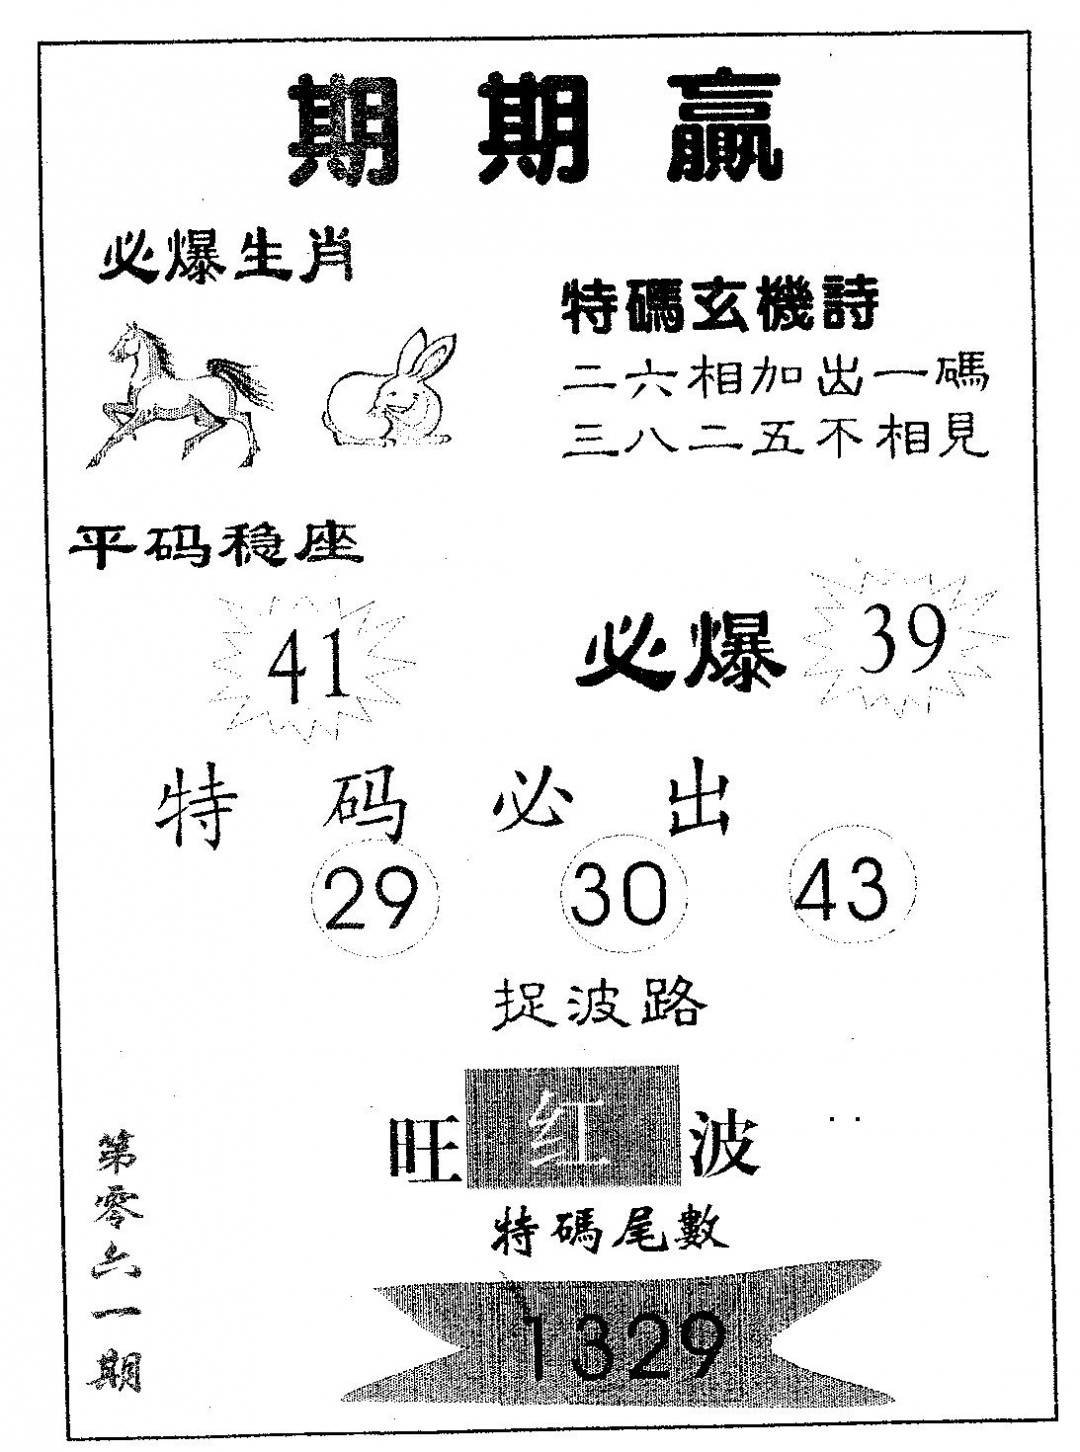 期期赢
必爆生肖
特碼玄機詩
二六相加出一碼
三八二五不相見
平码稳座
41
必爆 39
特码必出
29 30 43
捉波路
旺红波
特碼尾數
1329
第零六一期